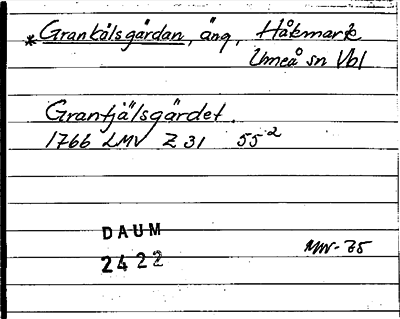 *Grankälsgärdan, äng, Håkmark
Umeå sn Vbl
Granfjälsgärdet.
1766 LMV Z 31 55²
DAUM
2422
MW-75